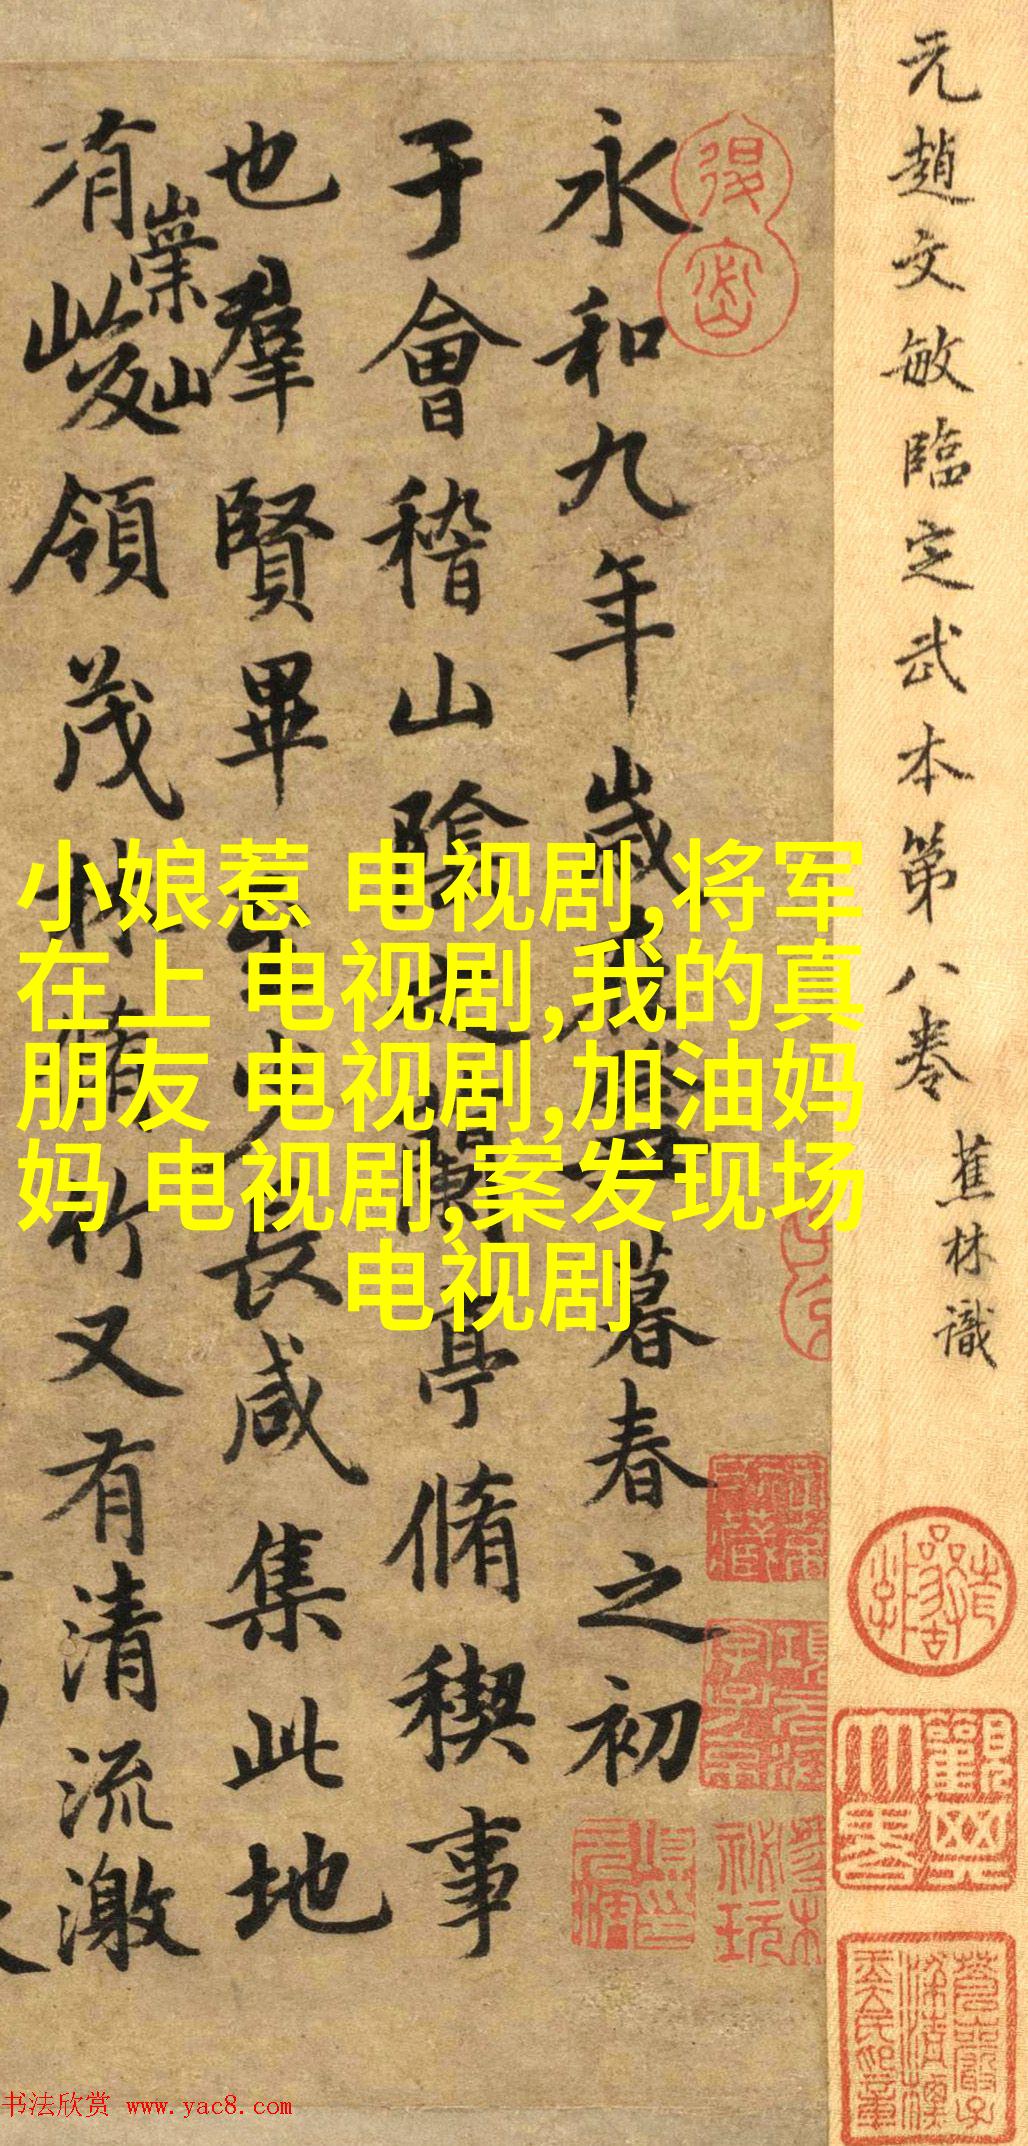 元趙文敏臨定武本第八卷
蕉林識
永和九年歲在癸丑暮春之初
于會稽山陰之蘭亭脩稧事
也羣賢畢至少長咸集此地
有崇山
峻領茂林脩竹又有清流激
小娘惹 电视剧,将军
在上 电视剧,我的真
朋友 电视剧,加油妈
妈 电视剧,案发现场
电视剧
书法欣赏 www.yac8.com